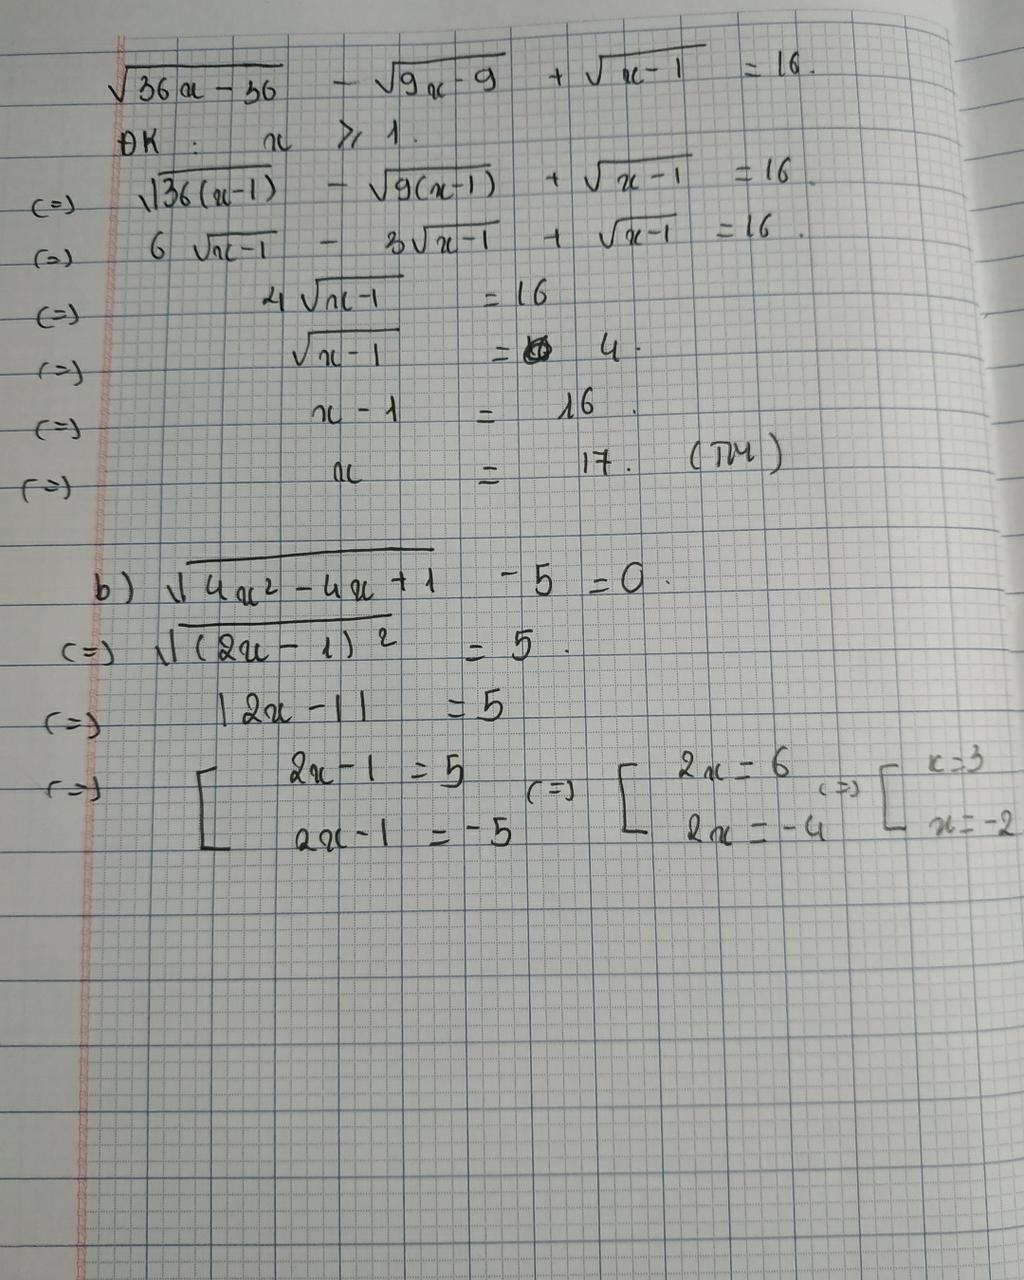 √(36x - 36) - √(9x - 9) + √(x - 1) = 16.
ĐK : x ≥ 1.
(=) √(36(x-1)) - √(9(x-1)) + √(x-1) = 16.
(=) 6√(x-1) - 3√(x-1) + √(x-1) = 16.
(=) 4√(x-1) = 16
(=) √(x-1) = 4.
(=) x - 1 = 16.
(=) x = 17. (TM)
b) √(4x² - 4x + 1) - 5 = 0.
(=) √((2x - 1)²) = 5.
(=) |2x - 1| = 5
(=) [ 2x - 1 = 5 (=) [ 2x = 6 (=) [ x = 3
2x - 1 = -5 2x = -4 x = -2